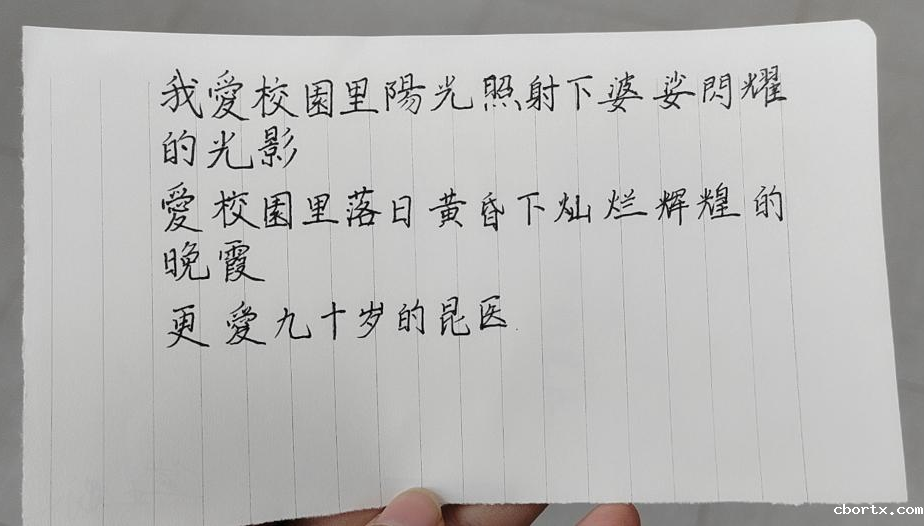 我愛校園里陽光照射下婆娑閃耀
的光影
愛校園里落日黄昏下灿烂辉煌的
晚霞
更愛九十岁的昆医
cbortx.com